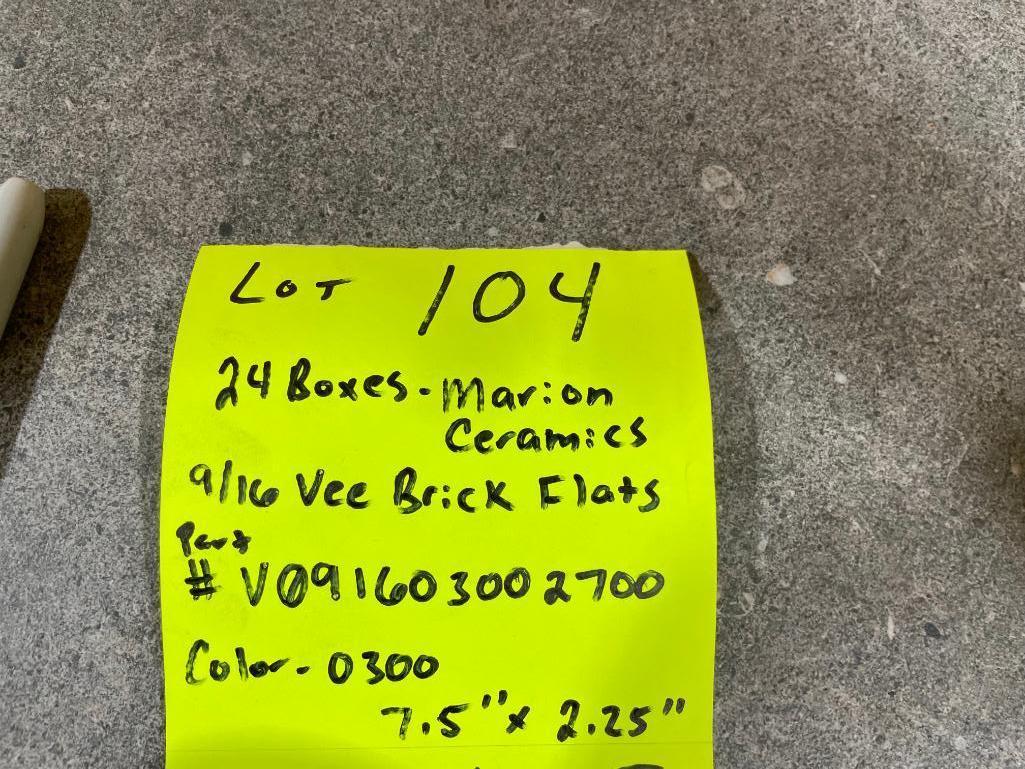 LOT 104
24 Boxes - Marion
Ceramics
9/16 Vee Brick Flats
Part
# V0916030002700
Color - 0300
7.5" x 2.25"